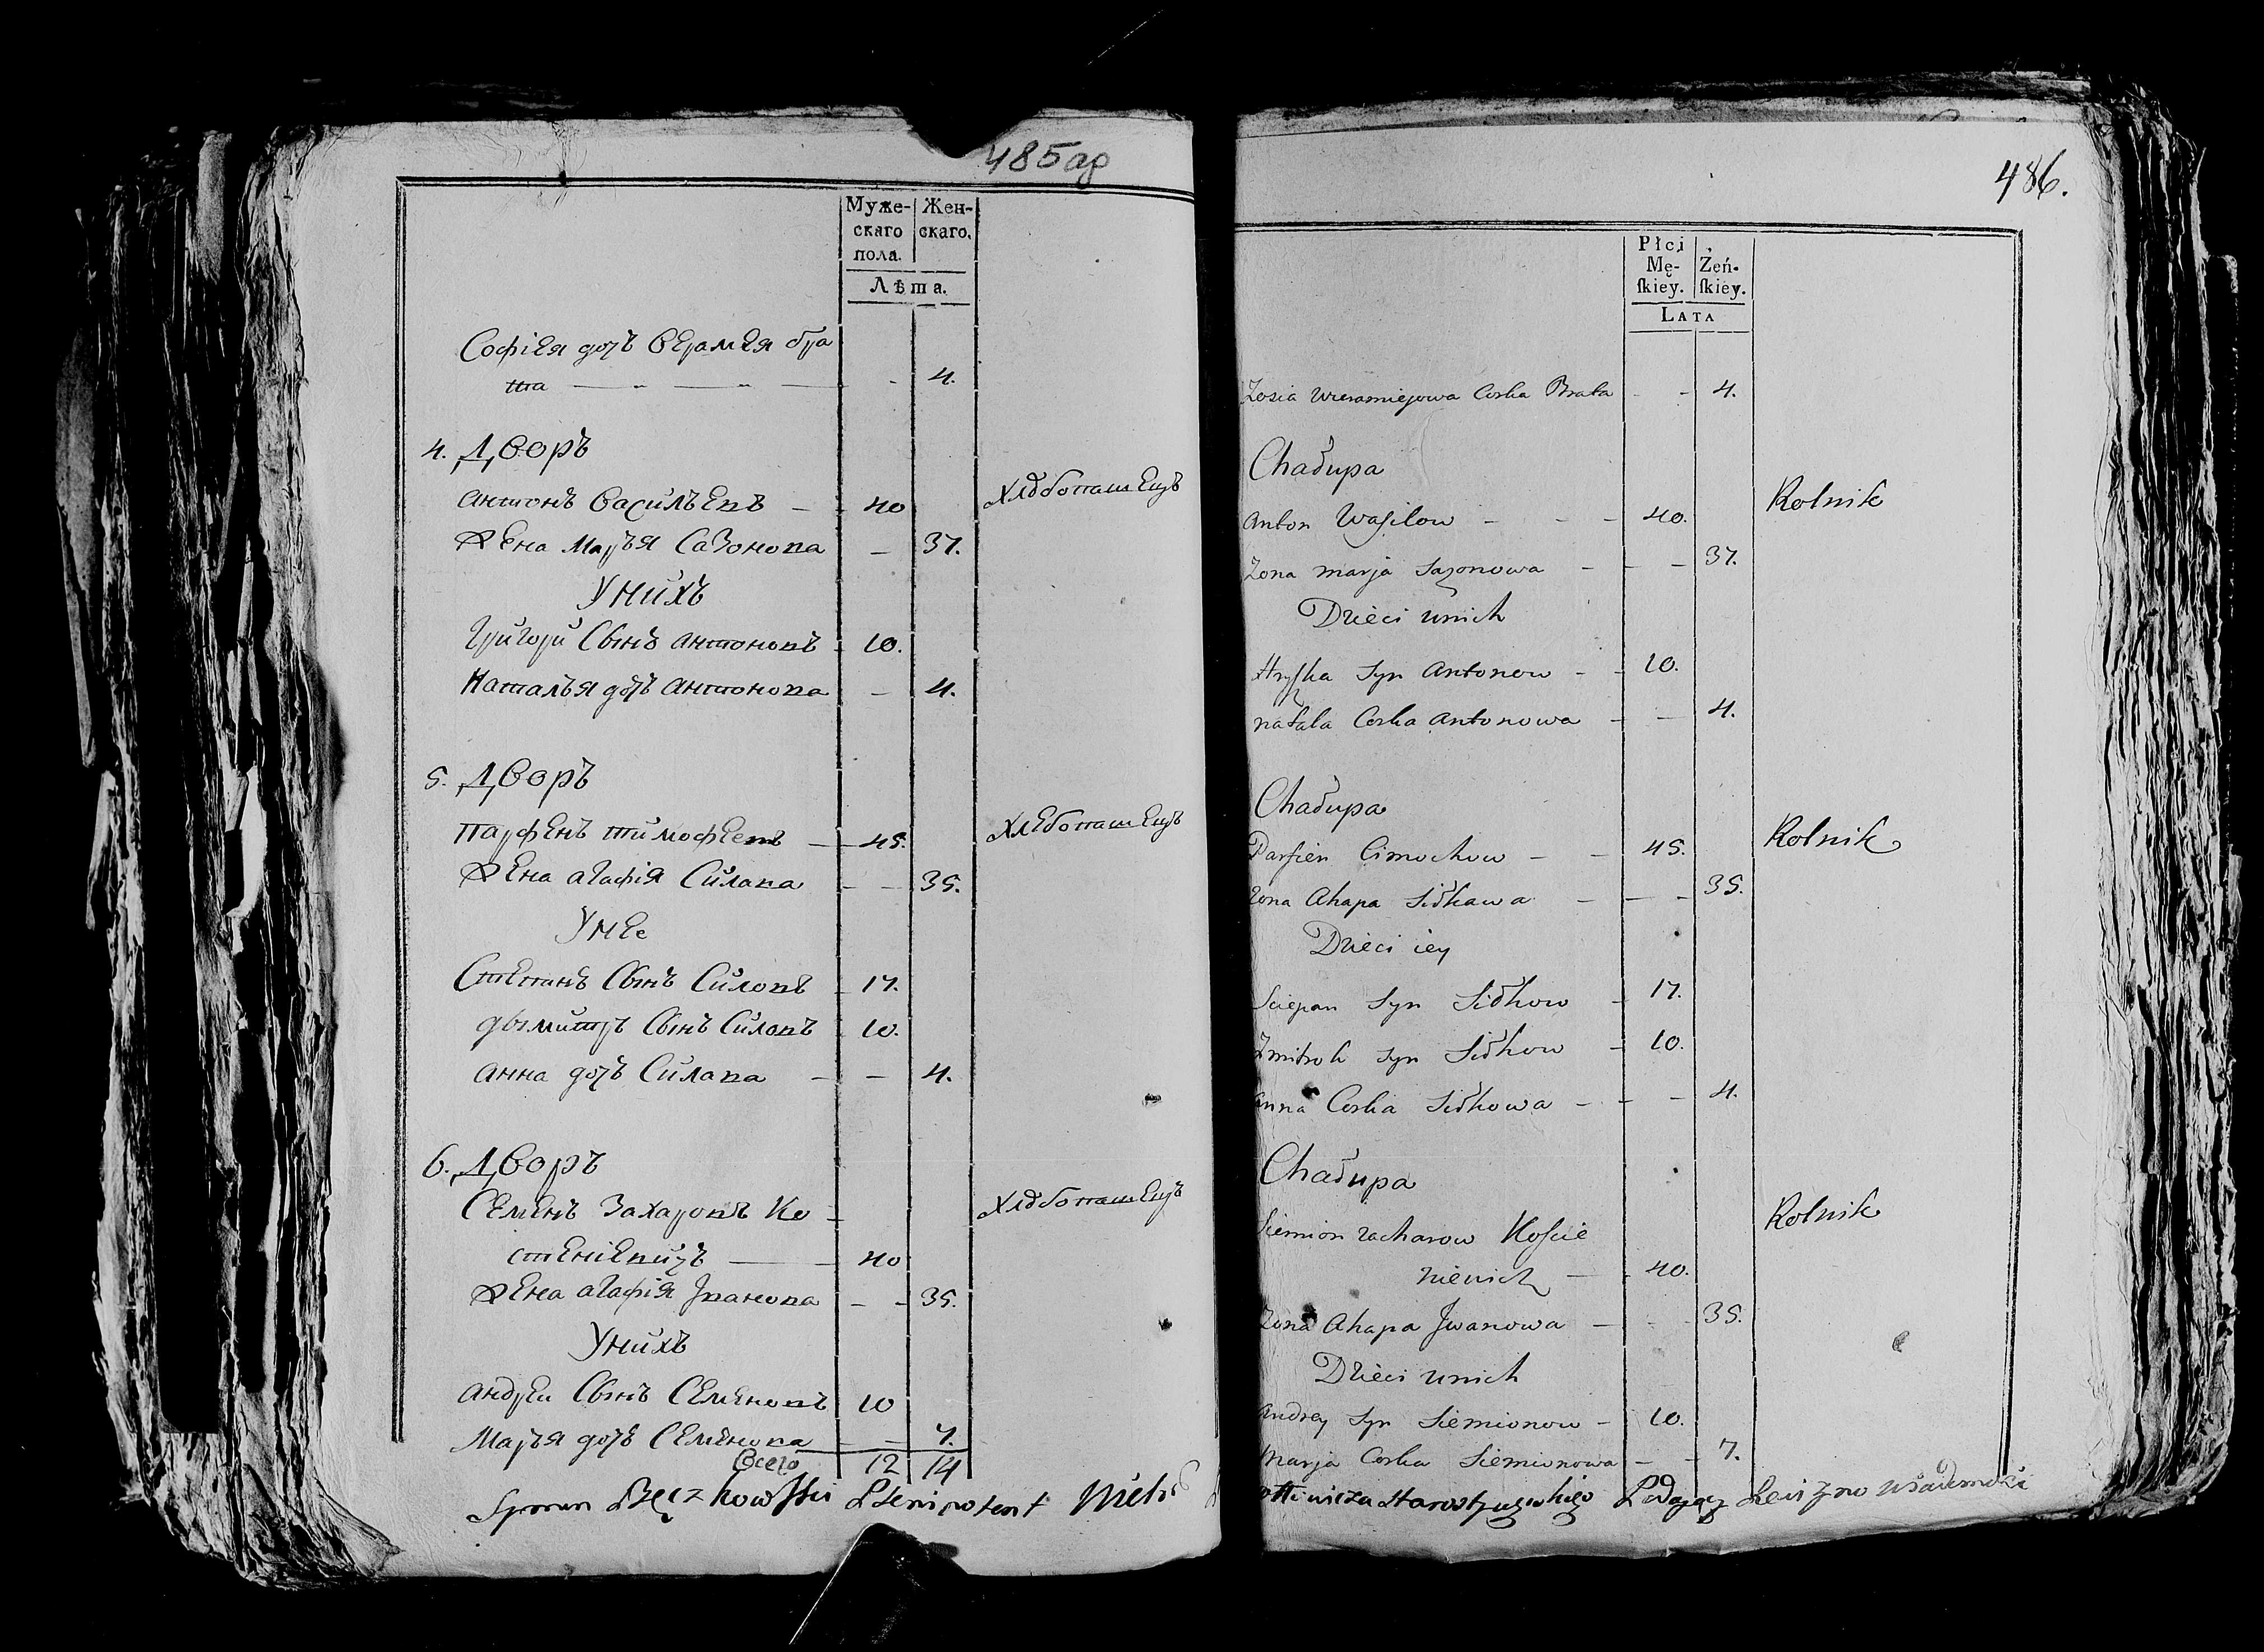 485 об
Муже-
скаго
пола.
Жен-
скаго.
Лѣта.
Софіея дочъ Верамея бра
та — " — " — - 4.
4. Дворъ
антонъ Василъевъ — 40 хлѣбопашецъ
Жена Маръя Сазонова — 37.
У нихъ
Григори Сынъ антоновъ 10.
Наталъя дочъ антонова — 4.
5. Дворъ
парфенъ тимофеевъ — 45. хлебопашецъ
Жена агафія Силава — — 35.
У нее
Степанъ Сынъ Силовъ 17.
дымитръ Сынъ Силовъ 10.
анна дочъ Силава — — 4.
6. Дворъ
Семенъ Захаровъ Ко хлѣбопашецъ
стеніевичъ — 40
Жена агафія Іванова — — 35.
У нихъ
андреи Сынъ Семеновъ 10
Маръя дочъ Семенова — — 7.
Всего 12 14
486.
Płci
Mę-
ſkiey.
Żeń-
ſkiey.
LATA
Zosia Wieramiejowa Corka Brata - - 4.
Chałupa
Anton Waſilow - - - 40. Rolnik
Zona marja Sazonowa - - - 37.
Dzieci unich
Hryſka Syn Antonow - - 10.
natala Corka Antonowa - — 4.
Chałupa
Parfien Cimochow - - 45. Rolnik
Zona Ahapa Siłkawa - — - 35.
Dzieci iey
Sciepan Syn Siłkow - 17.
Zmitrok Syn Siłkow - 10.
Anna Corka Siłkowa - - - 4.
Chałupa
Siemion zacharow Koſcie Rolnik
niewicz — - 40.
Zona Ahapa Jwanowa — - - 35.
Dzieci unich
Andrey Syn Siemionow - 10.
Marja Corka Siemionowa - - 7.